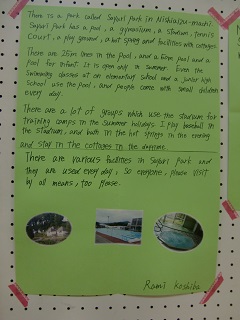 There is a park called Safari park in Nishiaizu-machi.
Safari park has a pool, a gymnasium, a stadium, tennis
court, a play ground, a hot spring and facilities with cottages
There are 25m lines in the pool, and a 50m pool and a
pool for infant. It is open only in summer. Even the
Swimming classes at an elementary school and a junior high
School use the pool, and people come with small children
every day.
There are a lot of groups which use the stadium for
training camps in the summer holidays. I play baseball in
the stadium, and bath in the hot springs in the evening
and stay in the cottages in the
There are various facilities in Safari park and
they are used every day, so everyone, please visit
by all means, too please.
Rami Koshiba